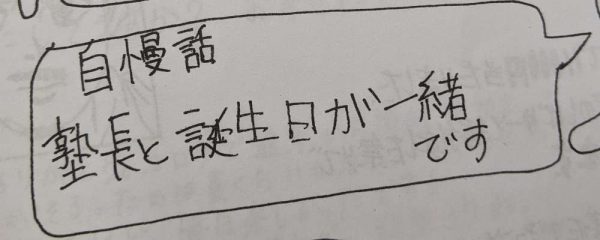 自慢話
塾長と誕生日が一緒
です